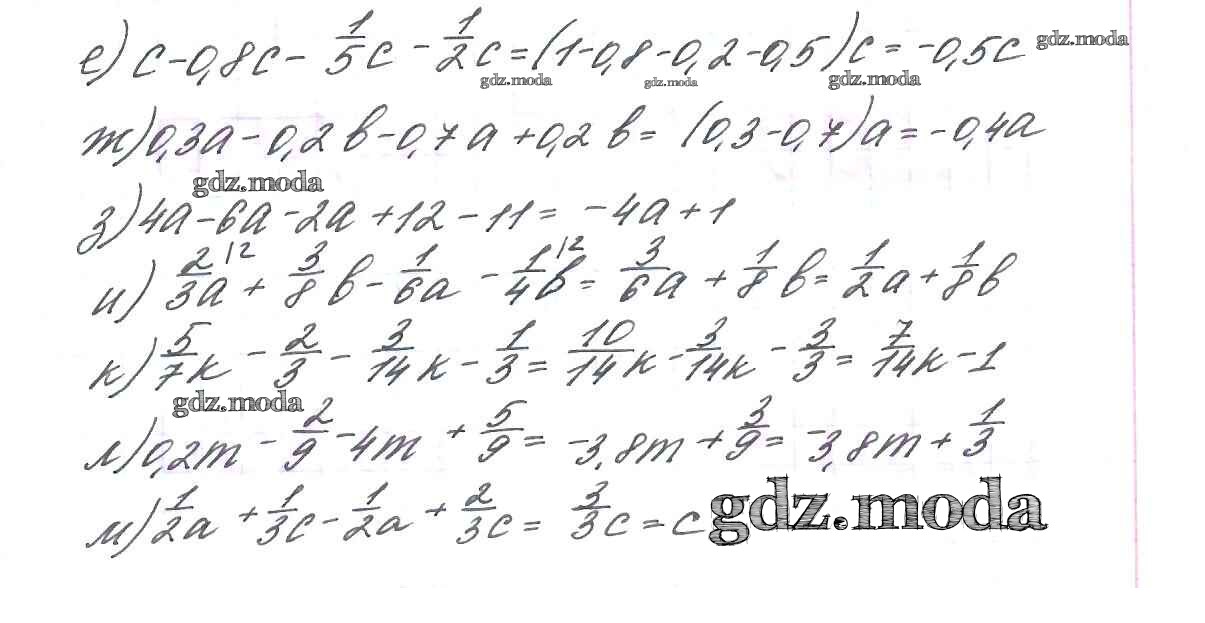 е) c - 0,8c - 1/5 c - 1/2 c = (1 - 0,8 - 0,2 - 0,5)c = -0,5c gdz.moda
gdz.moda gdz.moda gdz.moda
ж) 0,3a - 0,2b - 0,7a + 0,2b = (0,3 - 0,7)a = -0,4a
gdz.moda
з) 4a - 6a - 2a + 12 - 11 = -4a + 1
и) 2/3 a |2 + 3/8 b - 1/6 a - 1/4 b |2 = 3/6 a + 1/8 b = 1/2 a + 1/8 b
к) 5/7 k - 2/3 - 3/14 k - 1/3 = 10/14 k - 3/14 k - 3/3 = 7/14 k - 1
gdz.moda
л) 0,2m - 2/9 - 4m + 5/9 = -3,8m + 3/9 = -3,8m + 1/3
м) 1/2 a + 1/3 c - 1/2 a + 2/3 c = 3/3 c = c gdz.moda